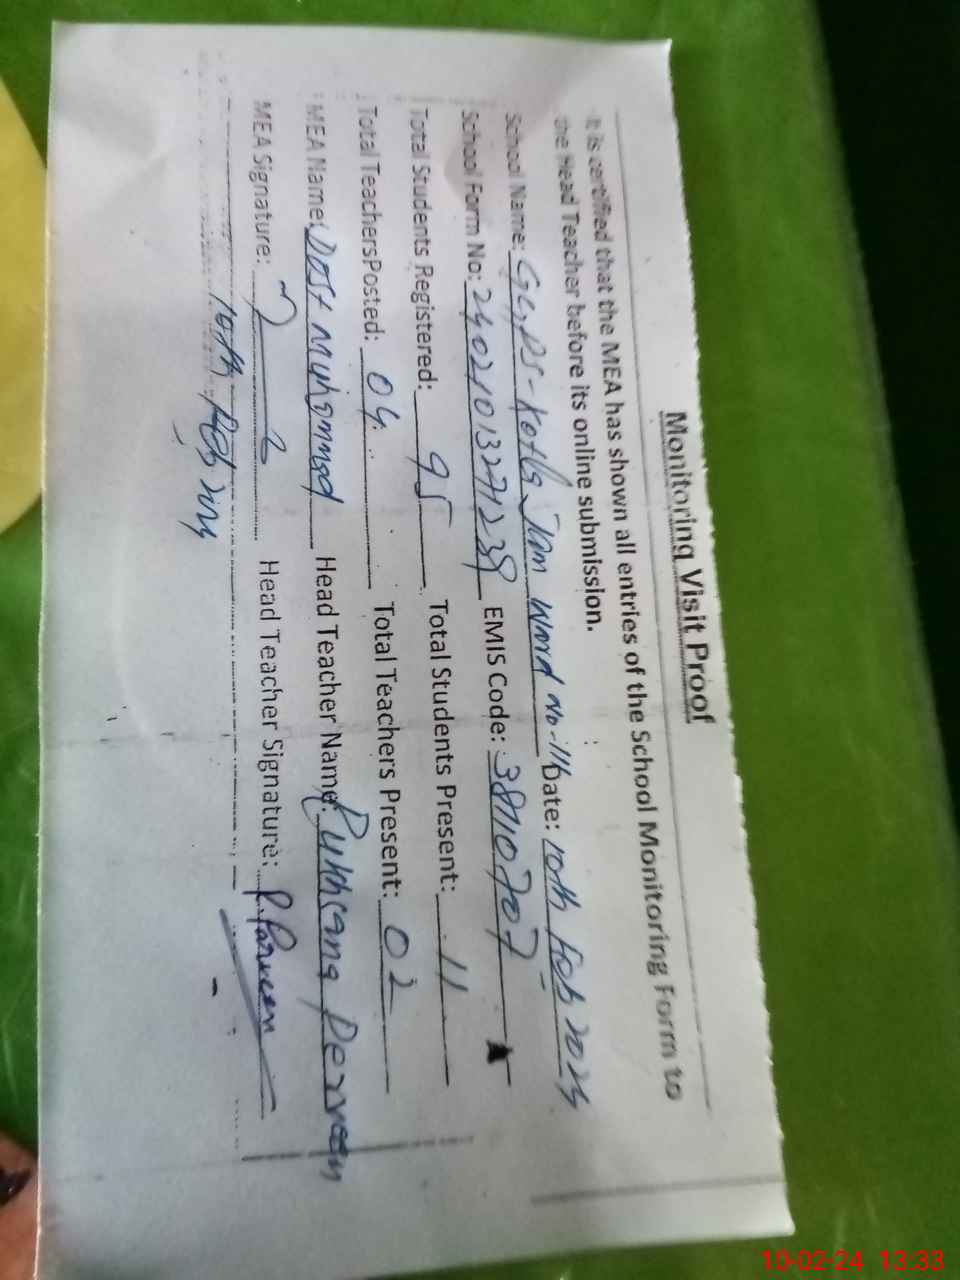 Monitoring Visit Proof
It is certified that the MEA has shown all entries of the School Monitoring Form to
the Head Teacher before its online submission.
School Name: GGPS-Kotla Jam Ward No-11 Date: 10th Feb 2024
School Form No: EMIS Code: 38710707
Total Students Registered: 95 Total Students Present: 11
Total TeachersPosted: 04 Total Teachers Present: 02
MEA Name: Dost Muhammad Head Teacher Name: Rukhsana Perveen
MEA Signature: Head Teacher Signature: R.Parveen
10th Feb 2024
10-02-24 13:33